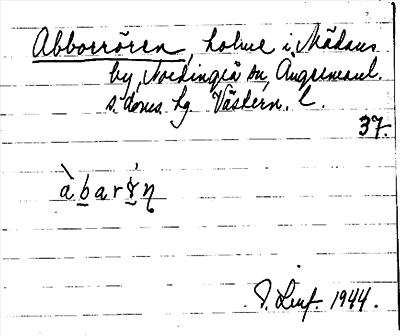 Abborrören, holme i Mädans
by, Nordingrå sn, Ångermanl.
s. doms. hg Västern. l.
37.
àbarən
1944.